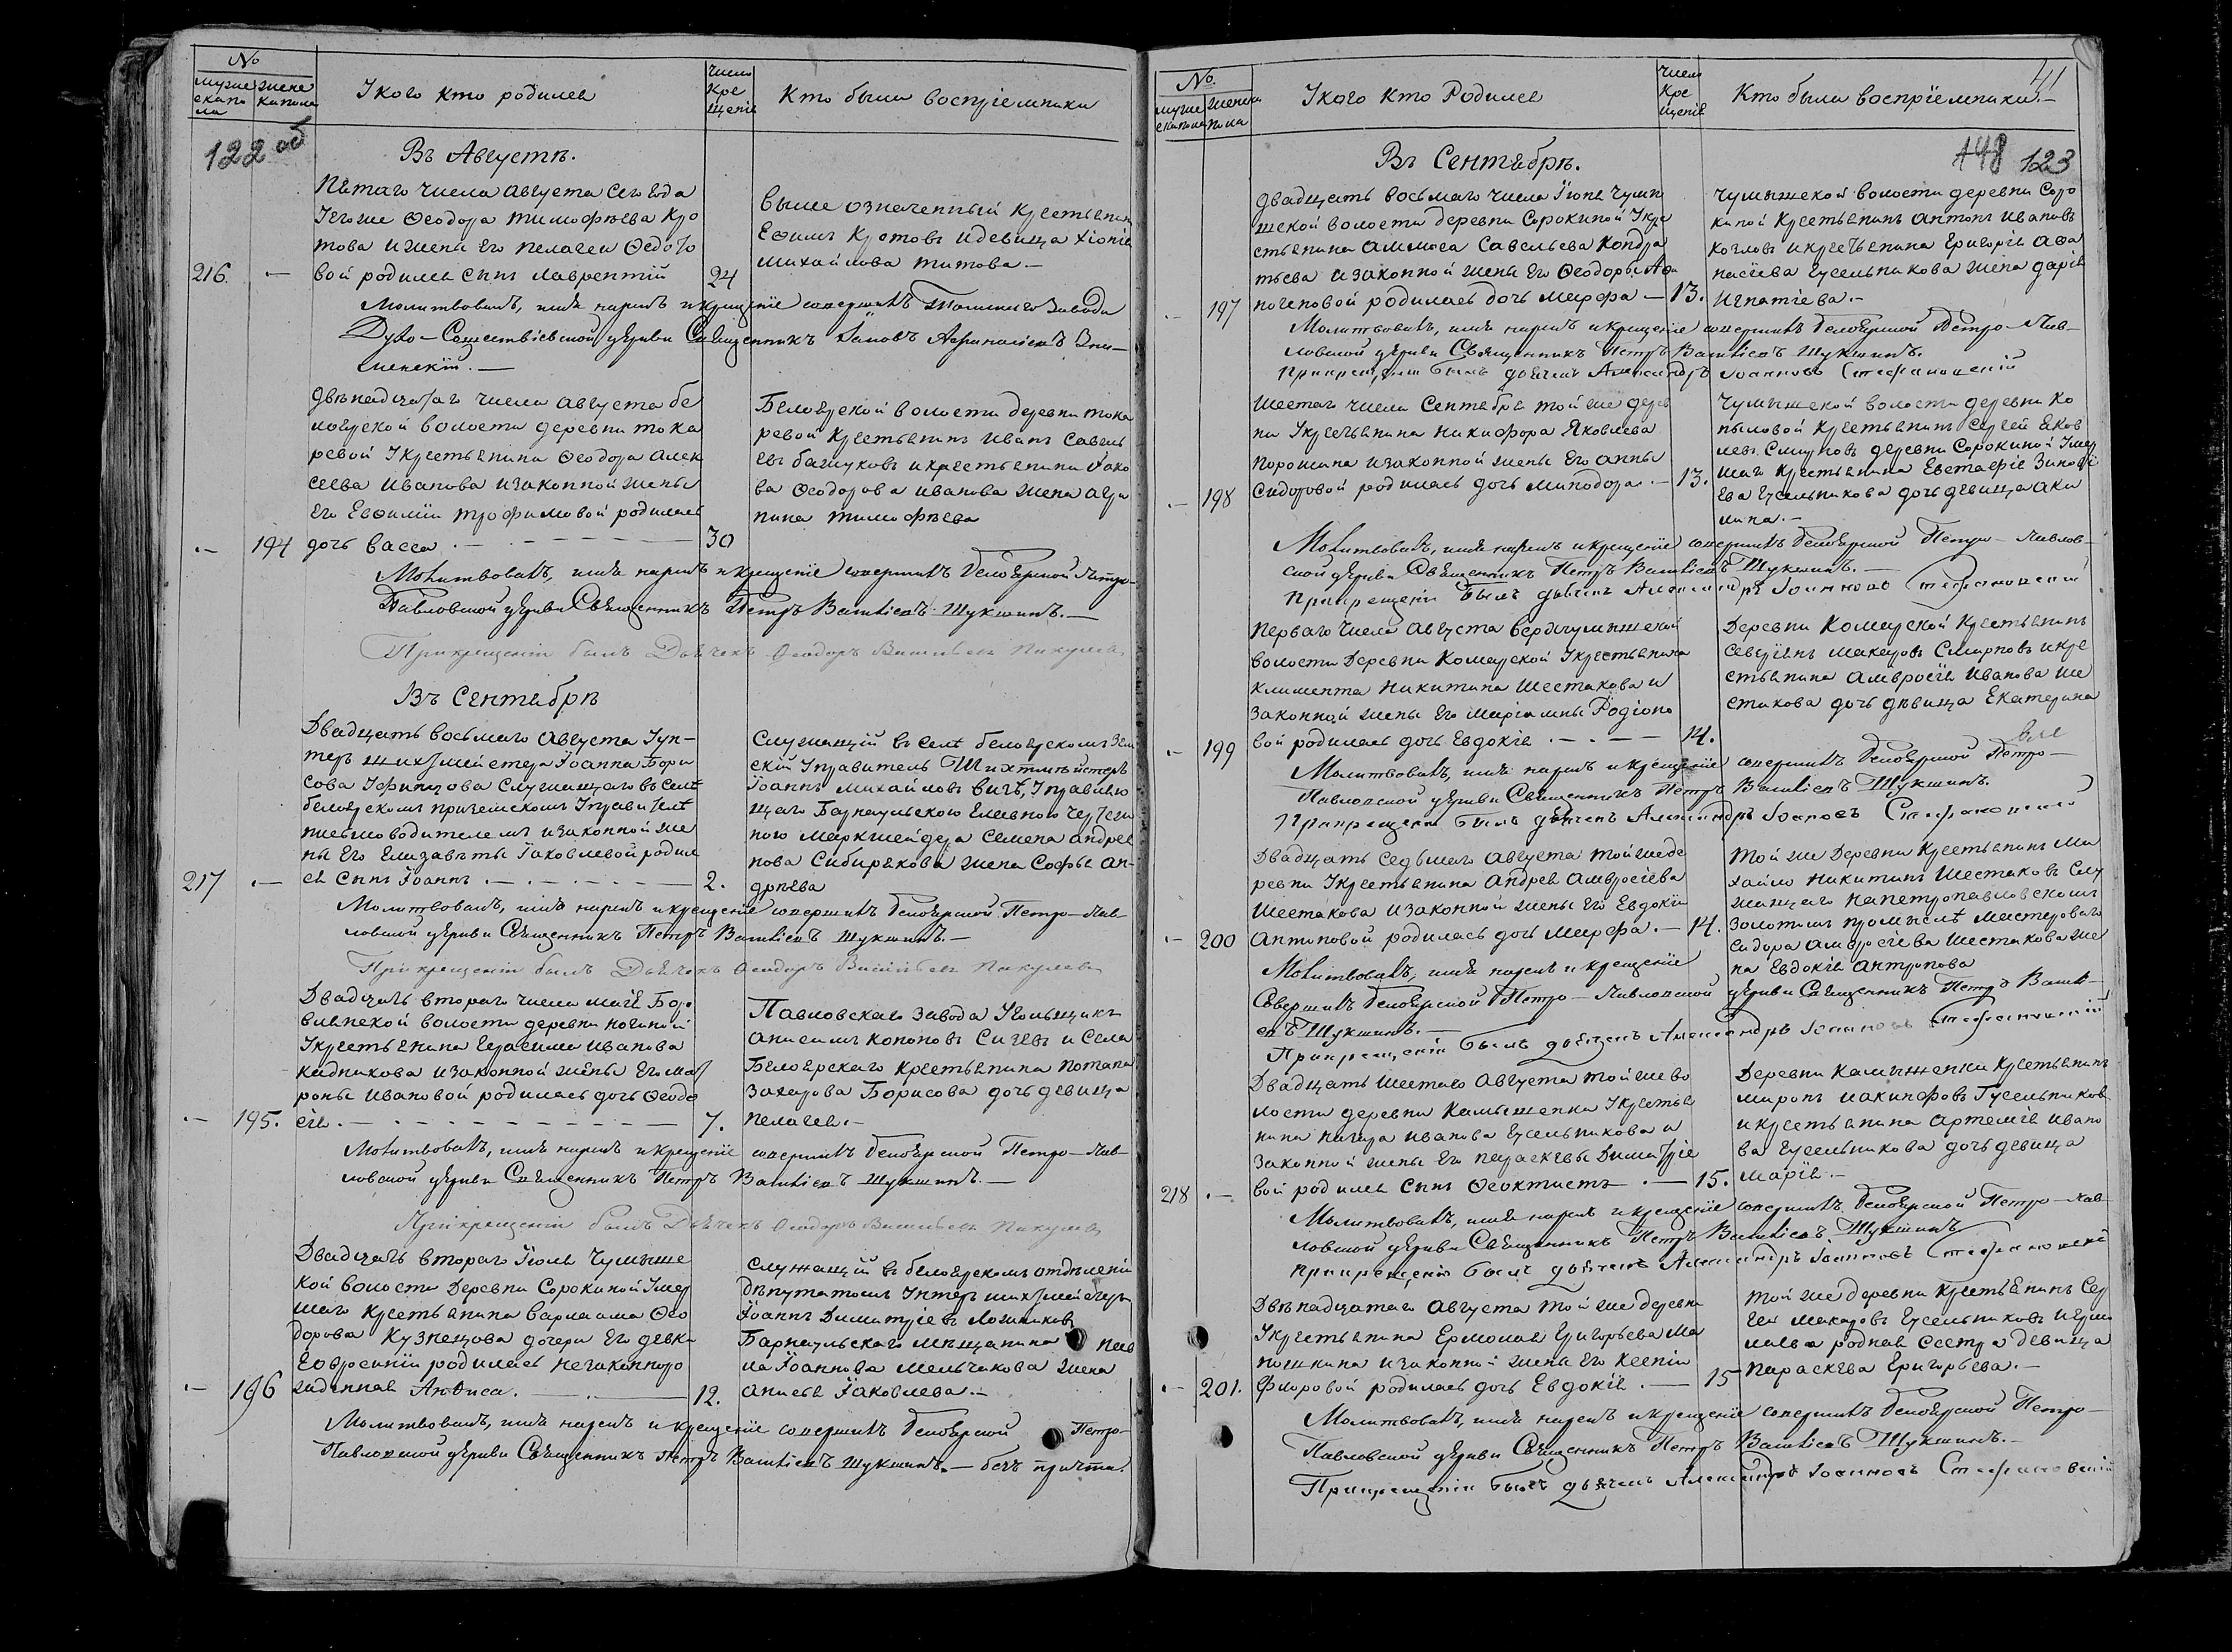 №
мужескаго пола женска пола
У кого кто родился
Число Крещенія
Кто были воспріемники
122 об
Въ Августѣ.
Пятаго числа августа сего года
У его же Ѳеодора тимофѣева Кро
това и жены его пелагеи Ѳедото
216. — вой родился сынъ лаврентій 24
выше означенный крестьянинъ
Ефимъ Кротовъ и девица хіонія
михайлова титова.—
Молитвовалъ, имя нарекъ и крещеніе совершилъ Томскаго Завода
Духо-Сошествіевской церкви Священникъ Іаковъ Афанасіевъ
двѣнадцатаго числа августа бе
лоярской волости деревни тока
ревой У крестьянина Ѳеодора алек
сеева иванова и законной жены
его Евфиміи трофимовой родилась
.— 194 дочь васса .— - - - — 30
Бѣлоярской волости деревни тока
ревой Крестьянинъ иванъ Савель
евъ бажуковъ и крестьянина Іако
ва Ѳеодорова иванова жена агра
пина тимофѣева
Молитвовалъ, имя нарекъ и крещеніе совершилъ белоярской Петро-
Павловской церкви Священникъ Петръ Васильевъ Шукшинъ.—
При крещеніи былъ Дьячекъ Ѳеодоръ Васильевъ Пикулевъ
Въ Сентябрѣ
Двадцать восьмаго августа Ун-
теръ шихтмейстера Іоанна Бори
сова Уфинцова служащаго въ селѣ
белоярскомъ при земскомъ Управителѣ
письмоводителемъ и законной же
ны его Елизаветы Іаковлевой родил
217 .— ся сынъ Іоаннъ .— . — . — 2.
Служащій въ селѣ белоярскомъ Зем
скій Управитель Шихтмейстеръ
Іоаннъ михайловъ Управляю
щаго Барнаульскою Главною чертеж
ною маркшейдера Семена андрея
нова Сибирякова жена Софья ан-
дрѣева
Молитвовалъ, имя нарекъ и крещеніе совершилъ белоярской Петро-Пав-
ловской церкви Священникъ Петръ Васильевъ Шукшинъ.—
При крещеніи былъ Дьячекъ Ѳеодоръ Васильевъ Пикулевъ
Двадцать втораго числа маія Боро
влянской волости деревни
У крестьянина Герасима иванова
Кадникова и законной жены его мат
роны ивановой родилась дочь Ѳеодо
.— 195. сія. — - - - — 7.
Павловскаго завода Угольщикъ
анисимъ кононовъ Сычевъ и села
Бѣлоярскаго крестьянина потапа
Захарова Борисова дочь девица
пелагея.—
Молитвовалъ, имя нарекъ и крещеніе совершилъ белоярской Петро-Пав-
ловской церкви Священникъ Петръ Васильевъ Шукшинъ.—
При крещеніи былъ Дьячекъ Ѳеодоръ Васильевъ Пикулевъ
Двадцать втораго Іюля Чумышс
кой волости деревни Сорокиной Умер
шаго крестьянина варлаама Ѳео
дорова Кузнецова дочери его девки
Евфросиніи родилась незаконноро
.— 196 жденная Анѳиса. — . — 12.
Служащій въ белоярскомъ отдѣленіи
дѣпутатомъ Унтеръ шихтмейстеръ
Іоаннъ Димитріевъ Ложниковъ
Барнаульскаго мѣщанина пав
ла Іоаннова мельчакова жена
анисья Іаковлева.—
Молитвовалъ, имя нарекъ и крещеніе совершилъ белоярской Петро-
Павловской церкви Священникъ Петръ Васильевъ Шукшинъ.— безъ причта.
№.
мужескаго пола женска пола
У кого кто Родился
Число Крещенія
Кто были воспріемники.—
41
Въ Сентябрѣ.
148 123
двадцать восьмаго числа Іюля чумы
шской волости деревни Сорокиной У кре
стьянина аммоса Савельева Кондра
тьева и законной жены его Ѳеодоры Афи
.— 197 ногеновой родилась дочь марфа — 13.
Чумышской волости деревни Соро
киной крестьянинъ антонъ ивановъ
козловъ и крестьянина Григорія афа
насіева Гусельникова жена дарія
игнатіева.—
Молитвовалъ, имя нарекъ и крещеніе совершилъ белоярской Петро-Пав-
ловской церкви Священникъ Петръ Васильевъ Шукшинъ.
При крещеніи былъ дьячекъ Александръ Іоанновъ Стефановскій
Шестаго числа Сентября той же дерев
ни У крестьянина никифора Яковлева
порошина и законной жены его анны
.— 198 Сидоровой родилась дочь минодора .— 13.
Чумышской волости деревни Ко
пыловой крестьянинъ Сергей Яков
левъ Смирновъ деревни Сорокиной Умер
шаго крестьянина Евстафія Зинові
ева Гусельникова дочь девица аки
лина.—
Молитвовалъ, имя нарекъ и крещеніе совершилъ белоярской Петро-Павлов-
ской церкви Священникъ Петръ Васильевъ Шукшинъ.—
При крещеніи былъ дьячекъ Александръ Іоанновъ Стефановскій
Перваго числа августа верхчумышской
волости деревни Комарской У крестьянина
климента никитина Шестакова и
законной жены его маріамны Родіоно
.— 199 вой родилась дочь Евдокія .— . — 14.
Деревни Комарской Крестьянинъ
Северіанъ макаровъ Смирновъ и кре
стьянина амвросія иванова ше
стакова дочь дѣвица Екатерина
Молитвовалъ, имя нарекъ и крещеніе совершилъ белоярской Петро-
Павловской церкви Священникъ Петръ Васильевъ Шукшинъ.
При крещеніи былъ дьячекъ Александръ Іоановъ Стефановскій
Двадцать седьмаго августа той же де
ревни У крестьянина андрея амвросіева
Шестакова и законной жены его Евдокіи
.— 200 антиповой родилась дочь марфа.— 14.
той же деревни Крестьянинъ ми
хайло никитинъ Шестаковъ слу
жащаго на петропавловскомъ
золотомъ промыслѣ мастероваго
Сидора амвросіева шестакова же
на Евдокія антропова
Молитвовалъ, имя нарекъ и крещеніе
Совершилъ белоярской Петро-Павловской церкви Священникъ Петръ Василь-
евъ Шукшинъ.—
При крещеніи былъ дьячекъ Александръ Іоанновъ Стефановскій
Двадцать шестаго августа той же во
лости деревни Камышенки У крестья
нина назара иванова Гусельникова и
законной жены его параскевы Димитріе
218 .— вой родился сынъ Ѳеоктистъ .— 15.
Деревни Камышенки Крестьянинъ
миронъ иакинфовъ Гусельниковъ
и крестьянина артемія ивано
ва Гусельникова дочь девица
марія.—
Молитвовалъ, имя нарекъ и крещеніе совершилъ белоярской Петро-Пав-
ловской церкви Священникъ Петръ Васильевъ Шукшинъ
При крещеніи былъ дьячекъ Александръ Іоанновъ Стефановскій
Двѣнадцатаго августа той же деревни
У крестьянина Ермолая Григорьева ма
ношкина и законной жены его Ксеніи
.— 201. Флоровой родилась дочь Евдокія .— 15
той же деревни крестьянинъ Сер
гей макаровъ Гусельниковъ и Ермо
лаева родная сестра девица
параскева Григорьева.—
Молитвовалъ, имя нарекъ и крещеніе совершилъ белоярской Петро-
Павловской церкви Священникъ Петръ Васильевъ Шукшинъ.—
При крещеніи былъ дьячекъ Александръ Іоанновъ Стефановскій